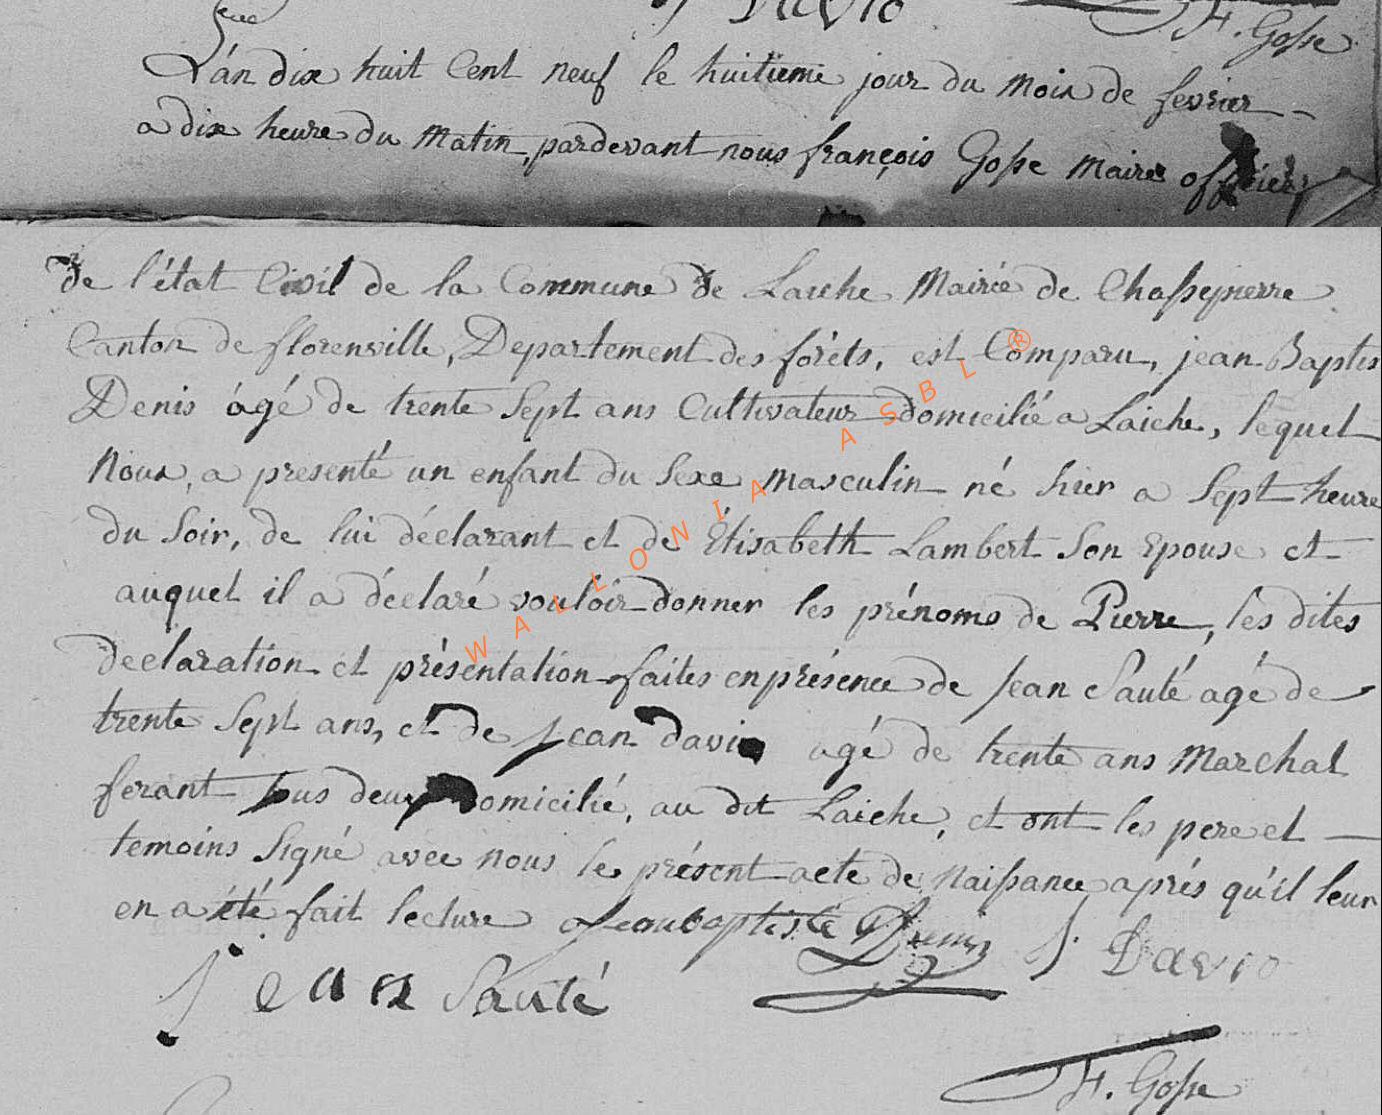 J Davio
F. Gosse
L'an dix huit Cent neuf le huitieme jour du mois de fevrier
a dix heure du matin, pardevant nous françois Gosse maire officier
de l'état Civil de la Commune de Laiche Mairie de Chassepierre
Canton de florenville, Departement des forêts, est Comparu, jean Baptis
Denis âgé de trente Sept ans Cultivateur domicilié a Laiche, lequel
Nous, a presenté un enfant du sexe masculin né hier a Sept heure
du Soir, de lui déclarant et de Élisabeth Lambert Son Epouse et
auquel il a déclaré vouloir donner les prénoms de Pierre, les dites
declaration et présentation faites en présence de Jean Sauté agé de
trente Sept ans, et de Jean davio agé de trente ans Marchal
ferant tous deux domicilié, au dit Laiche, et ont les pere et
temoins Signé avec nous le présent acte de naissance après qu'il leur
en a été fait lecture Jean baptiste Denis J. Davio
Jean Sauté
F. Gosse
WALLONIA ASBL ®